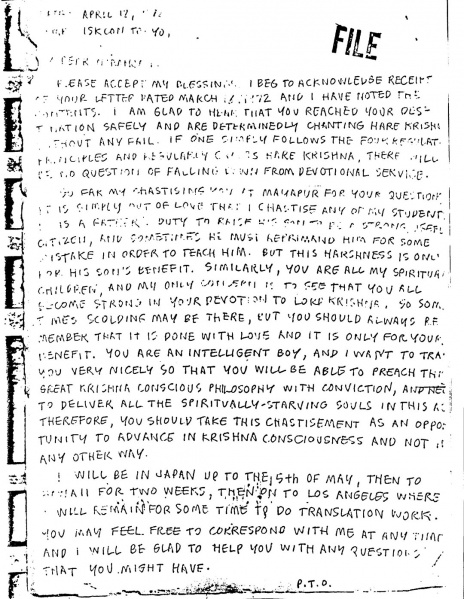 APRIL 12,
ISKCON TOKYO,
FILE
PLEASE ACCEPT MY BLESSINGS. I BEG TO ACKNOWLEDGE RECEIPT
OF YOUR LETTER DATED MARCH 1972 AND I HAVE NOTED THE
CONTENTS. I AM GLAD TO HEAR THAT YOU REACHED YOUR DES-
TINATION SAFELY AND ARE DETERMINEDLY CHANTING HARE KRISHN
WITHOUT ANY FAIL. IF ONE SIMPLY FOLLOWS THE FOUR REGULAT
PRINCIPLES AND REGULARLY CHANTS HARE KRISHNA, THERE WILL
BE NO QUESTION OF FALLING DOWN FROM DEVOTIONAL SERVICE.
SO FAR MY CHASTISING YOU AT MAYAPUR FOR YOUR QUESTION
IT IS SIMPLY OUT OF LOVE THAT I CHASTISE ANY OF MY STUDENT
IT IS A FATHER'S DUTY TO RAISE HIS SON TO BE A STRONG, USEFUL
CITIZEN, AND SOMETIMES HE MUST REPRIMAND HIM FOR SOME
MISTAKE IN ORDER TO TEACH HIM. BUT THIS HARSHNESS IS ONLY
FOR HIS SON'S BENEFIT. SIMILARLY, YOU ARE ALL MY SPIRITUAL
CHILDREN, AND MY ONLY CONCERN IS TO SEE THAT YOU ALL
BECOME STRONG IN YOUR DEVOTION TO LORD KRISHNA. SO SOME
TIMES SCOLDING MAY BE THERE, BUT YOU SHOULD ALWAYS RE-
MEMBER THAT IT IS DONE WITH LOVE AND IT IS ONLY FOR YOUR
BENEFIT. YOU ARE AN INTELLIGENT BOY, AND I WANT TO TRA
YOU VERY NICELY SO THAT YOU WILL BE ABLE TO PREACH THI
GREAT KRISHNA CONSCIOUS PHILOSOPHY WITH CONVICTION, AND
TO DELIVER ALL THE SPIRITUALLY-STARVING SOULS IN THIS A
THEREFORE, YOU SHOULD TAKE THIS CHASTISEMENT AS AN OPPO
TUNITY TO ADVANCE IN KRISHNA CONSCIOUSNESS AND NOT I
ANY OTHER WAY.
I WILL BE IN JAPAN UP TO THE 5th OF MAY, THEN TO
HAWAII FOR TWO WEEKS, THEN ON TO LOS ANGELES WHERE
I WILL REMAIN FOR SOME TIME TO DO TRANSLATION WORK.
YOU MAY FEEL FREE TO CORRESPOND WITH ME AT ANY TIME
AND I WILL BE GLAD TO HELP YOU WITH ANY QUESTIONS
THAT YOU MIGHT HAVE.
P.T.O.